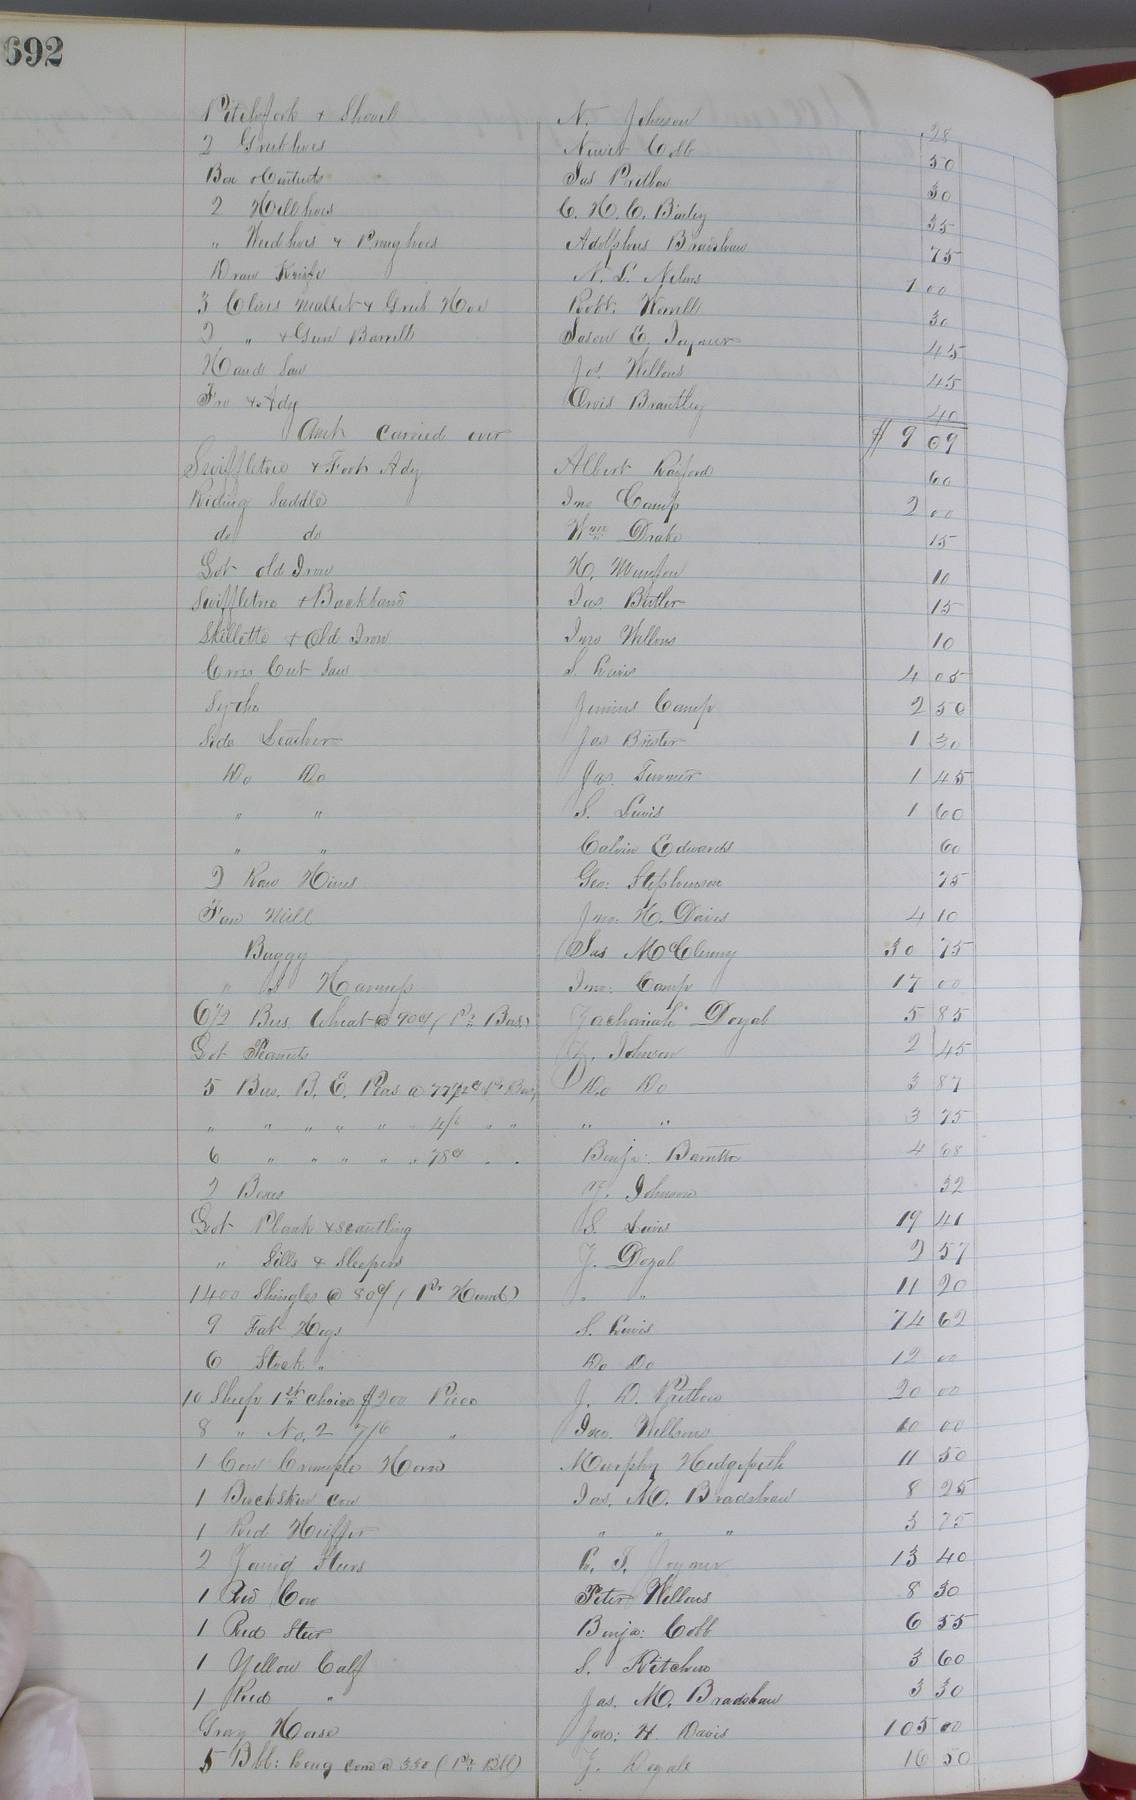 692
Pitchfork & Shovel N. Johnson 28
2 Grubhoes Newit Cobb 50
Box & Contents Jas Pretlow 30
2 Hillhoes C. H. C. Bailey 35
" Weedhoes & Prughoes Adolphus Bradshaw 75
Draw Knife N. L. Nelms 1 00
3 Clevis Mallet & Grub Hoe Robt. Worrell 30
2 " & Gun Barrell Jason E. Joyner 45
Hand Saw Jos. Wellons 45
Fro & Adz Orvis Brantley 40
Amt carried over $ 9 09
Swiffletree & Foot Adz Albert Raiford 60
Riding Saddle Jno Camp 2 00
do do Wm Drake 15
Lot old Iron H. 10
Swiffletree & Backband Jas Butler 15
Skilletts & Old Iron Jno Wellons 10
Cross Cut Saw S. Lewis 4 05
Scythe Junius Camp 2 50
Side Leather Jas Brister 1 30
Do Do Jas. Turner 1 45
" " S. Lewis 1 60
" " Calvin Edwards 60
2 Raw Hides Geo: Stephenson 75
Fan Mill Jno. H. Davis 4 10
Buggy Jas McClenny 30 75
" Harness Jno: Camp 17 00
6 1/2 Bus Wheat @ 90¢ (Pr Bus.) Zachariah Doyal 5 85
Lot Peanuts Z. Johnson 2 45
5 Bus. B. E. Peas @ 77 1/2¢ Pr Bus. Do Do 3 87
" " " " " " 4/6 " " " " 3 75
6 " " " " " 78¢ " " Benja: Barrett 4 68
2 Boxes Z. Johnson 32
Lot Plank & scantling S. Lewis 19 41
" Sills & Sleepers Z. Doyal 2 57
1400 Shingles @ 80¢ (Pr Hund) " " 11 20
9 Fat Hogs S. Lewis 74 62
6 Stock " Do Do 12 00
10 Sheep 1st choice $2 00 Piece J. D. Pretlow 20 00
8 " No. 2 7/6 " Jno. Wellons 10 00
1 Cow Crumple Horn Murphy Hedgepeth 11 50
1 Buckskin cow Jas. M. Bradshaw 8 25
1 Red Heiffer " " " 3 75
2 Young Steers L. T. Joyner 13 40
1 Red Cow Peter Wellons 8 30
1 Red Steer Benja: Cobb 6 55
1 Yellow Calf S. Kitchen 3 60
1 Red " Jas. M. Bradshaw 3 30
Gray Horse Jno: H. Davis 105 00
5 Bbl: Long corn @ 330 (Pr Bbl) Z. Doyale 16 50